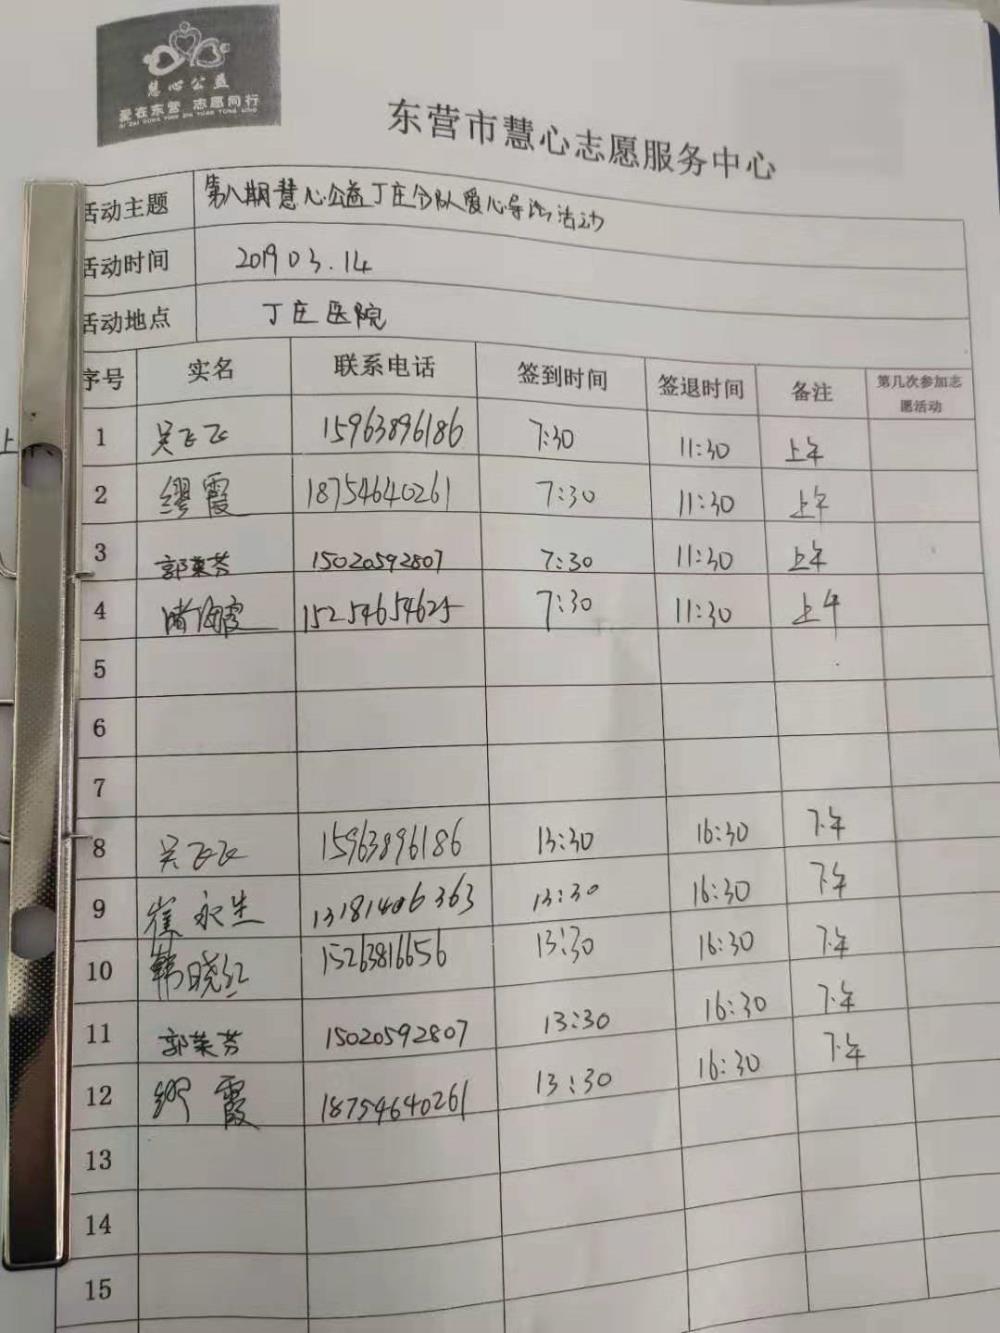 慧心公益
爱在东营 志愿同行
AI ZAI DONG YING ZHI YUAN TONG XING
东营市慧心志愿服务中心
活动主题 第八期慧心公益丁庄分队爱心导诊活动
活动时间 2019 03.14
活动地点 丁庄医院
序号 实名 联系电话 签到时间 签退时间 备注 第几次参加志愿活动
1 吴飞飞 15963896186 7:30 11:30 上午
2 缪霞 18754640261 7:30 11:30 上午
3 郭荣芳 15020592807 7:30 11:30 上午
4 海霞 15254654625 7:30 11:30 上午
5
6
7
8 吴飞飞 15963896186 13:30 16:30 下午
9 崔永生 13181406363 13:30 16:30 下午
10 韩晓红 15263816656 13:30 16:30 下午
11 郭荣芳 15020592807 13:30 16:30 下午
12 缪霞 18754640261 13:30 16:30 下午
13
14
15